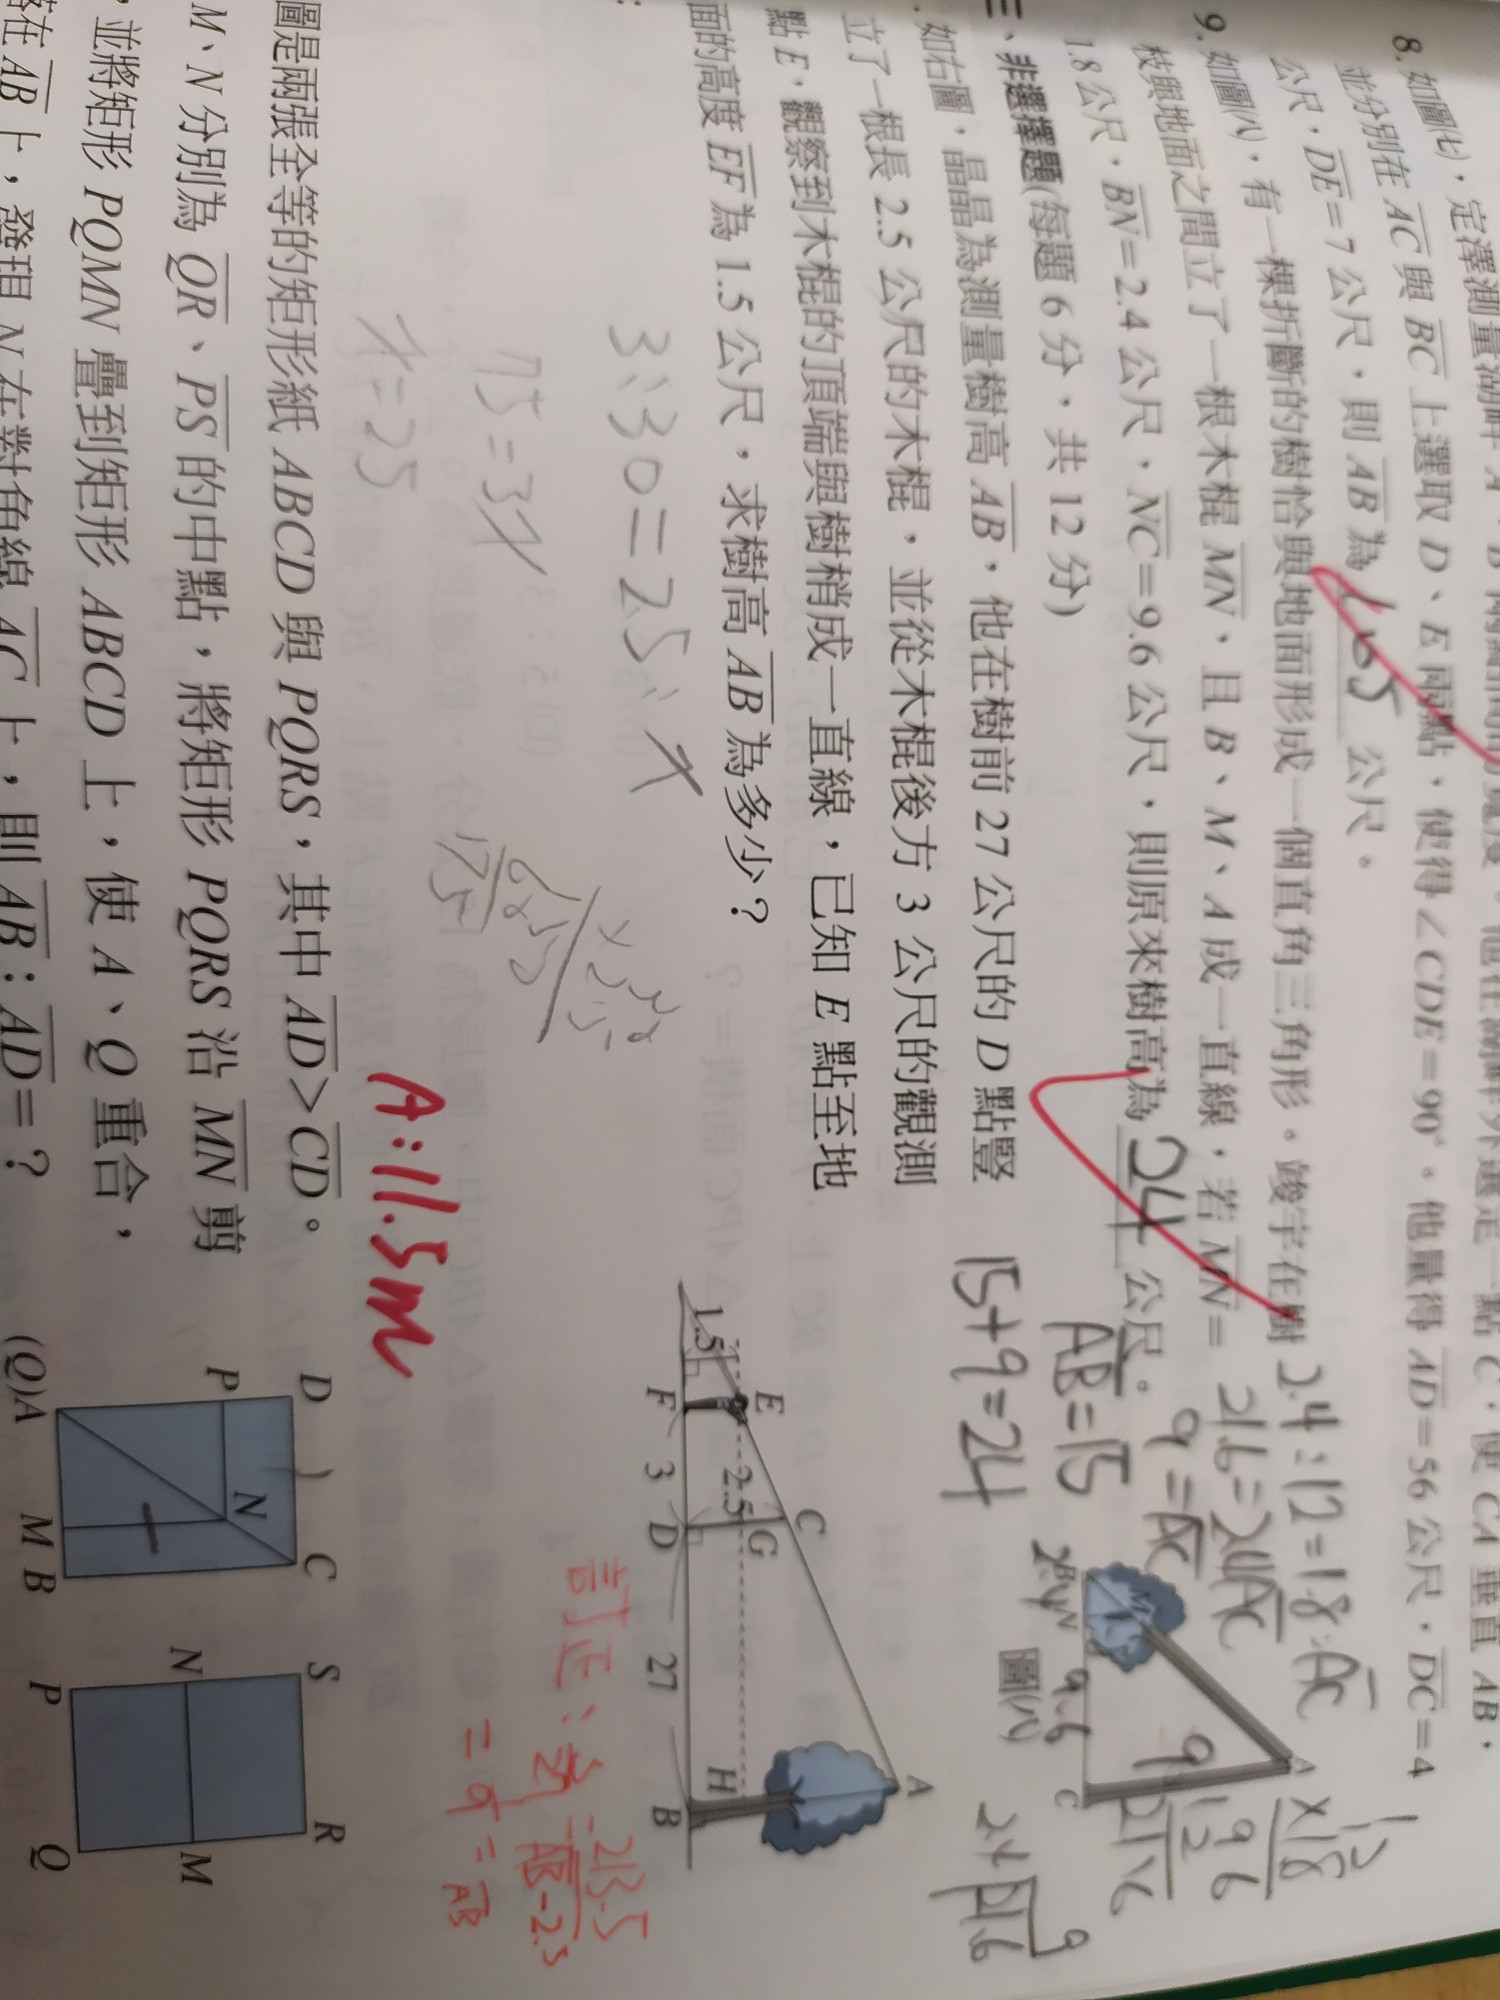 8. 如圖(七),定澤測量湖畔 A、B 兩點間的寬度。他在湖畔外選定一點 C,使 CA 垂直 AB,
並分別在 AC 與 BC 上選取 D、E 兩點,使得∠CDE=90°。他量得 AD=56 公尺,DC=4
公尺,DE=7 公尺,則 AB 為 105 公尺。
9. 如圖(八),有一棵折斷的樹恰與地面形成一個直角三角形。竣宇在樹
枝與地面之間立了一根木棍 MN,且 B、M、A 成一直線,若 MN=
1.8 公尺,BN=2.4 公尺,NC=9.6 公尺,則原來樹高為 24 公尺。
2.4:12=1.8:AC
21.6=2.4AC
9=AC
AB=15
15+9=24
12
×1.8
96
12
21.6
9
2.4 21.6
A
B
M
N
C
2.4
9.6
9
圖(八)
三、非選擇題(每題 6 分,共 12 分)
如右圖,晶晶為測量樹高 AB,他在樹前 27 公尺的 D 點豎
立了一根長 2.5 公尺的木棍,並從木棍後方 3 公尺的觀測
點 E,觀察到木棍的頂端與樹梢成一直線,已知 E 點至地
面的高度 EF 為 1.5 公尺,求樹高 AB 為多少?
3:30=2.5:x
75=3x
x=25
A:11.5m
A
C
E
G
H
1.5
2.5
F
3
D
27
B
訂正:
圖是兩張全等的矩形紙 ABCD 與 PQRS,其中 AD>CD。
M、N 分別為 QR、PS 的中點,將矩形 PQRS 沿 MN 剪
,並將矩形 PQMN 疊到矩形 ABCD 上,使 A、Q 重合,
落在 AB 上,發現 N 在對角線 AC 上,則 AB:AD=?
D
C
P
N
(Q)A
M
B
S
R
N
M
P
Q